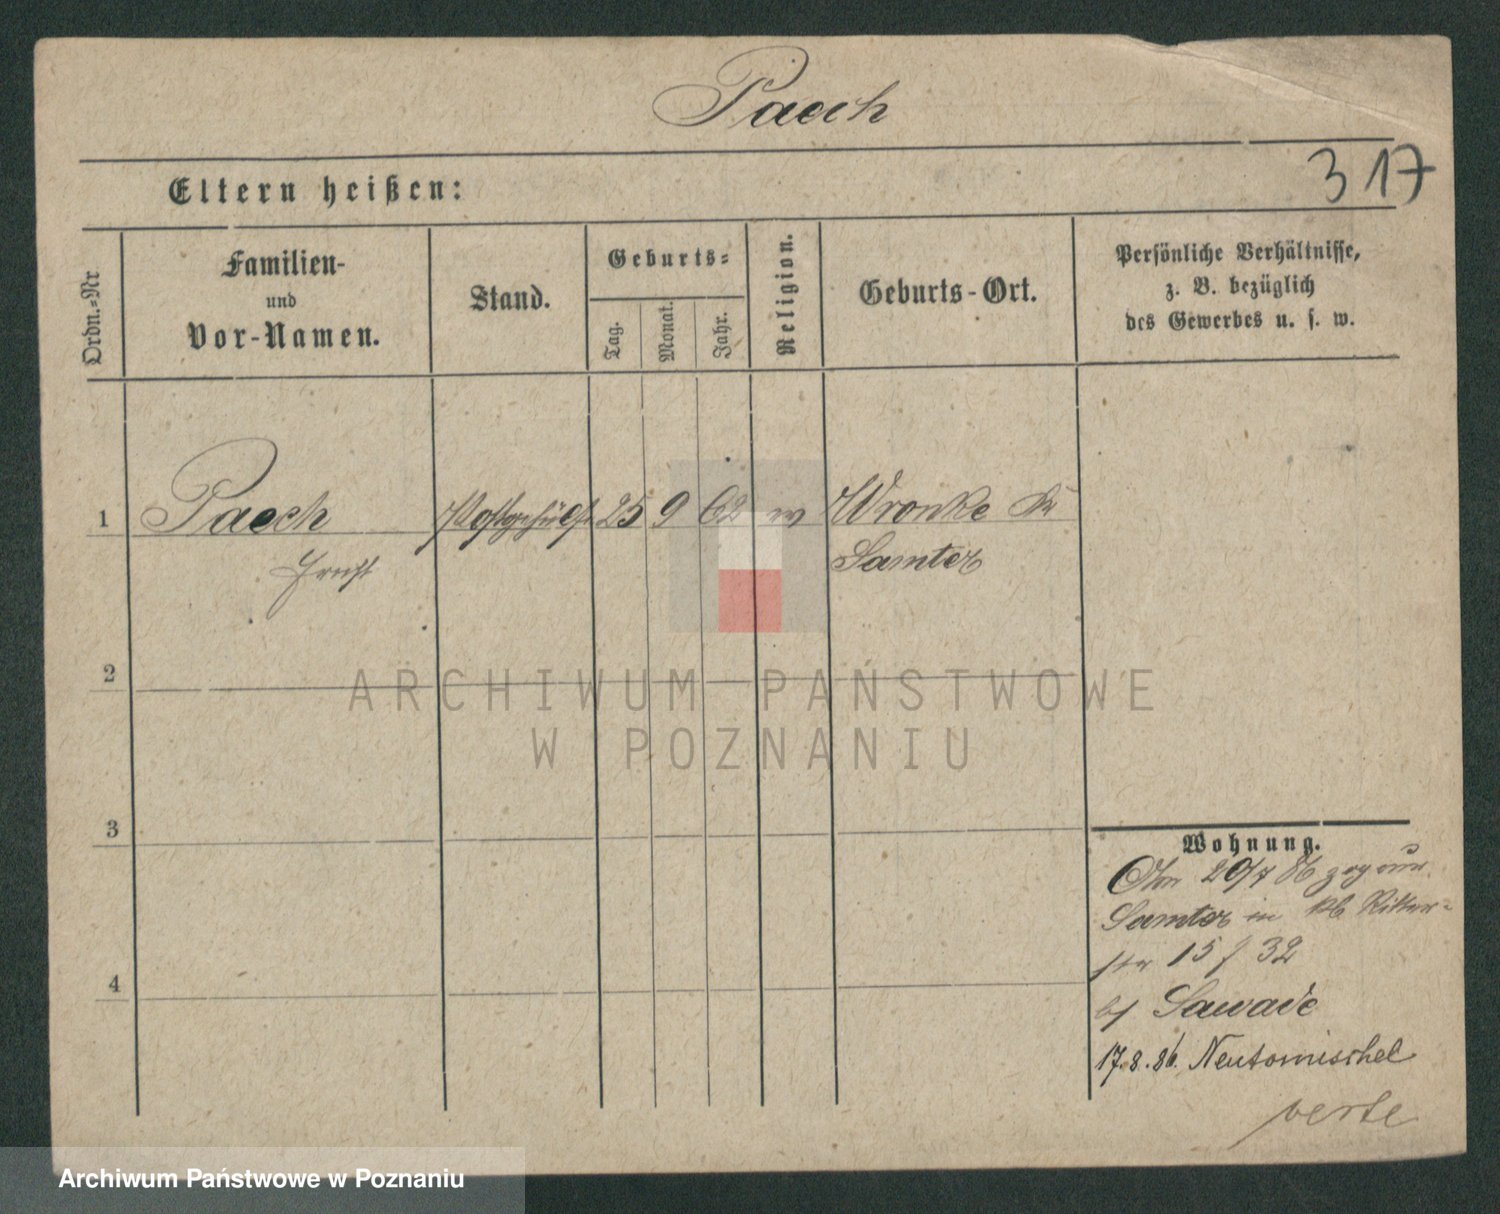 Paech
317
Eltern heißen:
Ordn.-Nr
Familien-
und
Vor-Namen.
Stand.
Geburts-
Tag.
Monat.
Jahr.
Religion.
Geburts-Ort.
Persönliche Verhältnisse,
z. B. bezüglich
des Gewerbes u. s. w.
1 Paech Postgehülfe 25 9 62 Wronke Kr
Ernst Samter
2
3
4
ARCHIWUM PAŃSTWOWE
W POZNANIU
Wohnung.
20/7 86 zog
Samter in Ritter-
str 15 / 32
bei Sawade
17.8.86. Neutomischel
verte
Archiwum Państwowe w Poznaniu